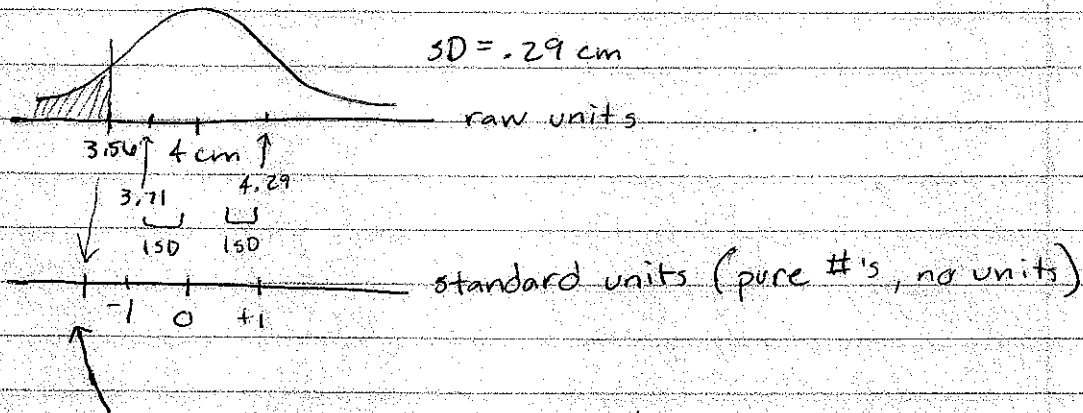 SD = .29 cm
raw units
3.56 4 cm
3.71 4.29
1SD 1SD
standard units (pure #'s, no units)
-1 0 +1